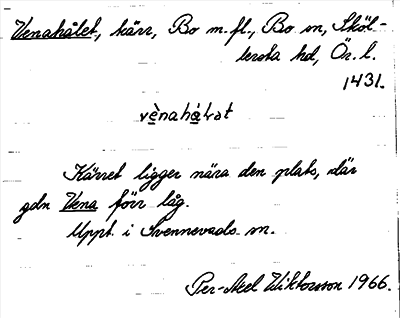 Venahålet, kärr, Bo m.fl., Bo sn, Sköl-
lersta hd, Ör. l.
1431.
vènahá̀lət
Kärret ligger nära den plats, där
gdn Vena förr låg.
Uppt. i Svennevads sn.
Per-Axel Wiktorsson 1966.